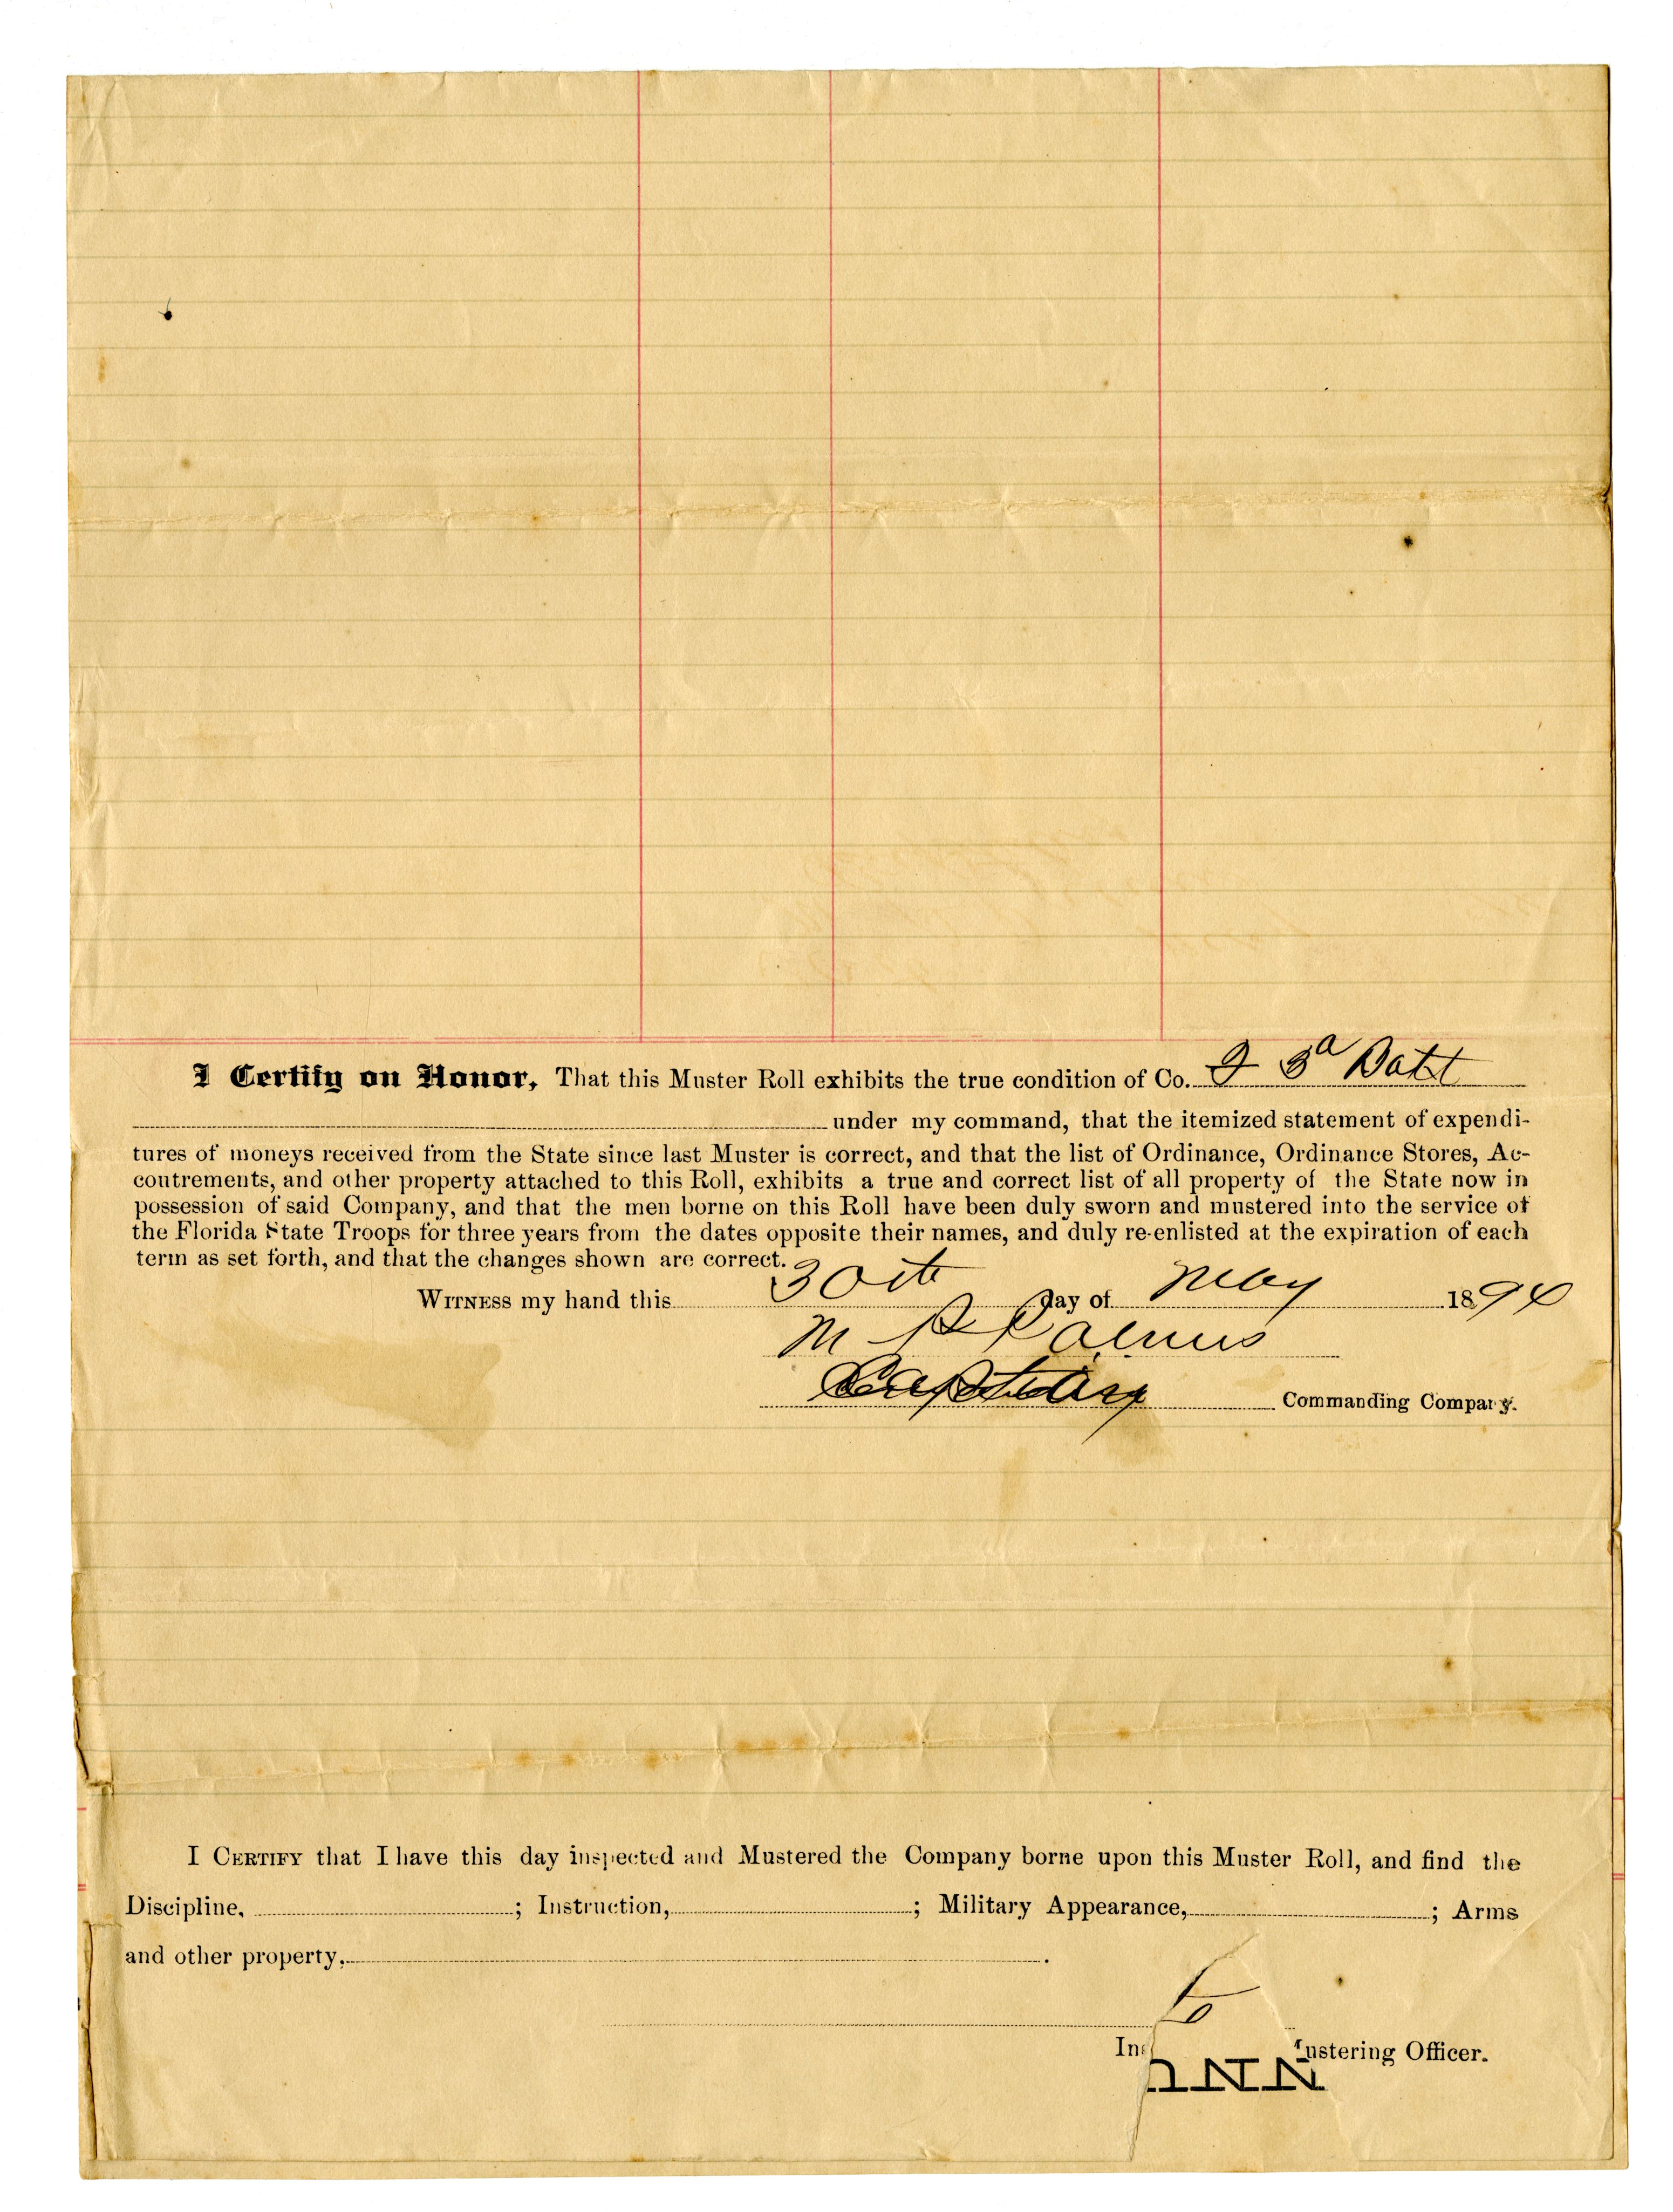 I Certify on Honor, That this Muster Roll exhibits the true condition of Co. 3d Batt
under my command, that the itemized statement of expendi-
tures of moneys received from the State since last Muster is correct, and that the list of Ordinance, Ordinance Stores, Ac-
coutrements, and other property attached to this Roll, exhibits a true and correct list of all property of the State now in
possession of said Company, and that the men borne on this Roll have been duly sworn and mustered into the service of
the Florida State Troops for three years from the dates opposite their names, and duly re-enlisted at the expiration of each
term as set forth, and that the changes shown are correct.
WITNESS my hand this 30th day of May 1894
M
Commanding Company.
I CERTIFY that I have this day inspected and Mustered the Company borne upon this Muster Roll, and find the
Discipline, ; Instruction, ; Military Appearance, ; Arms
and other property, .
to
Ins ustering Officer.